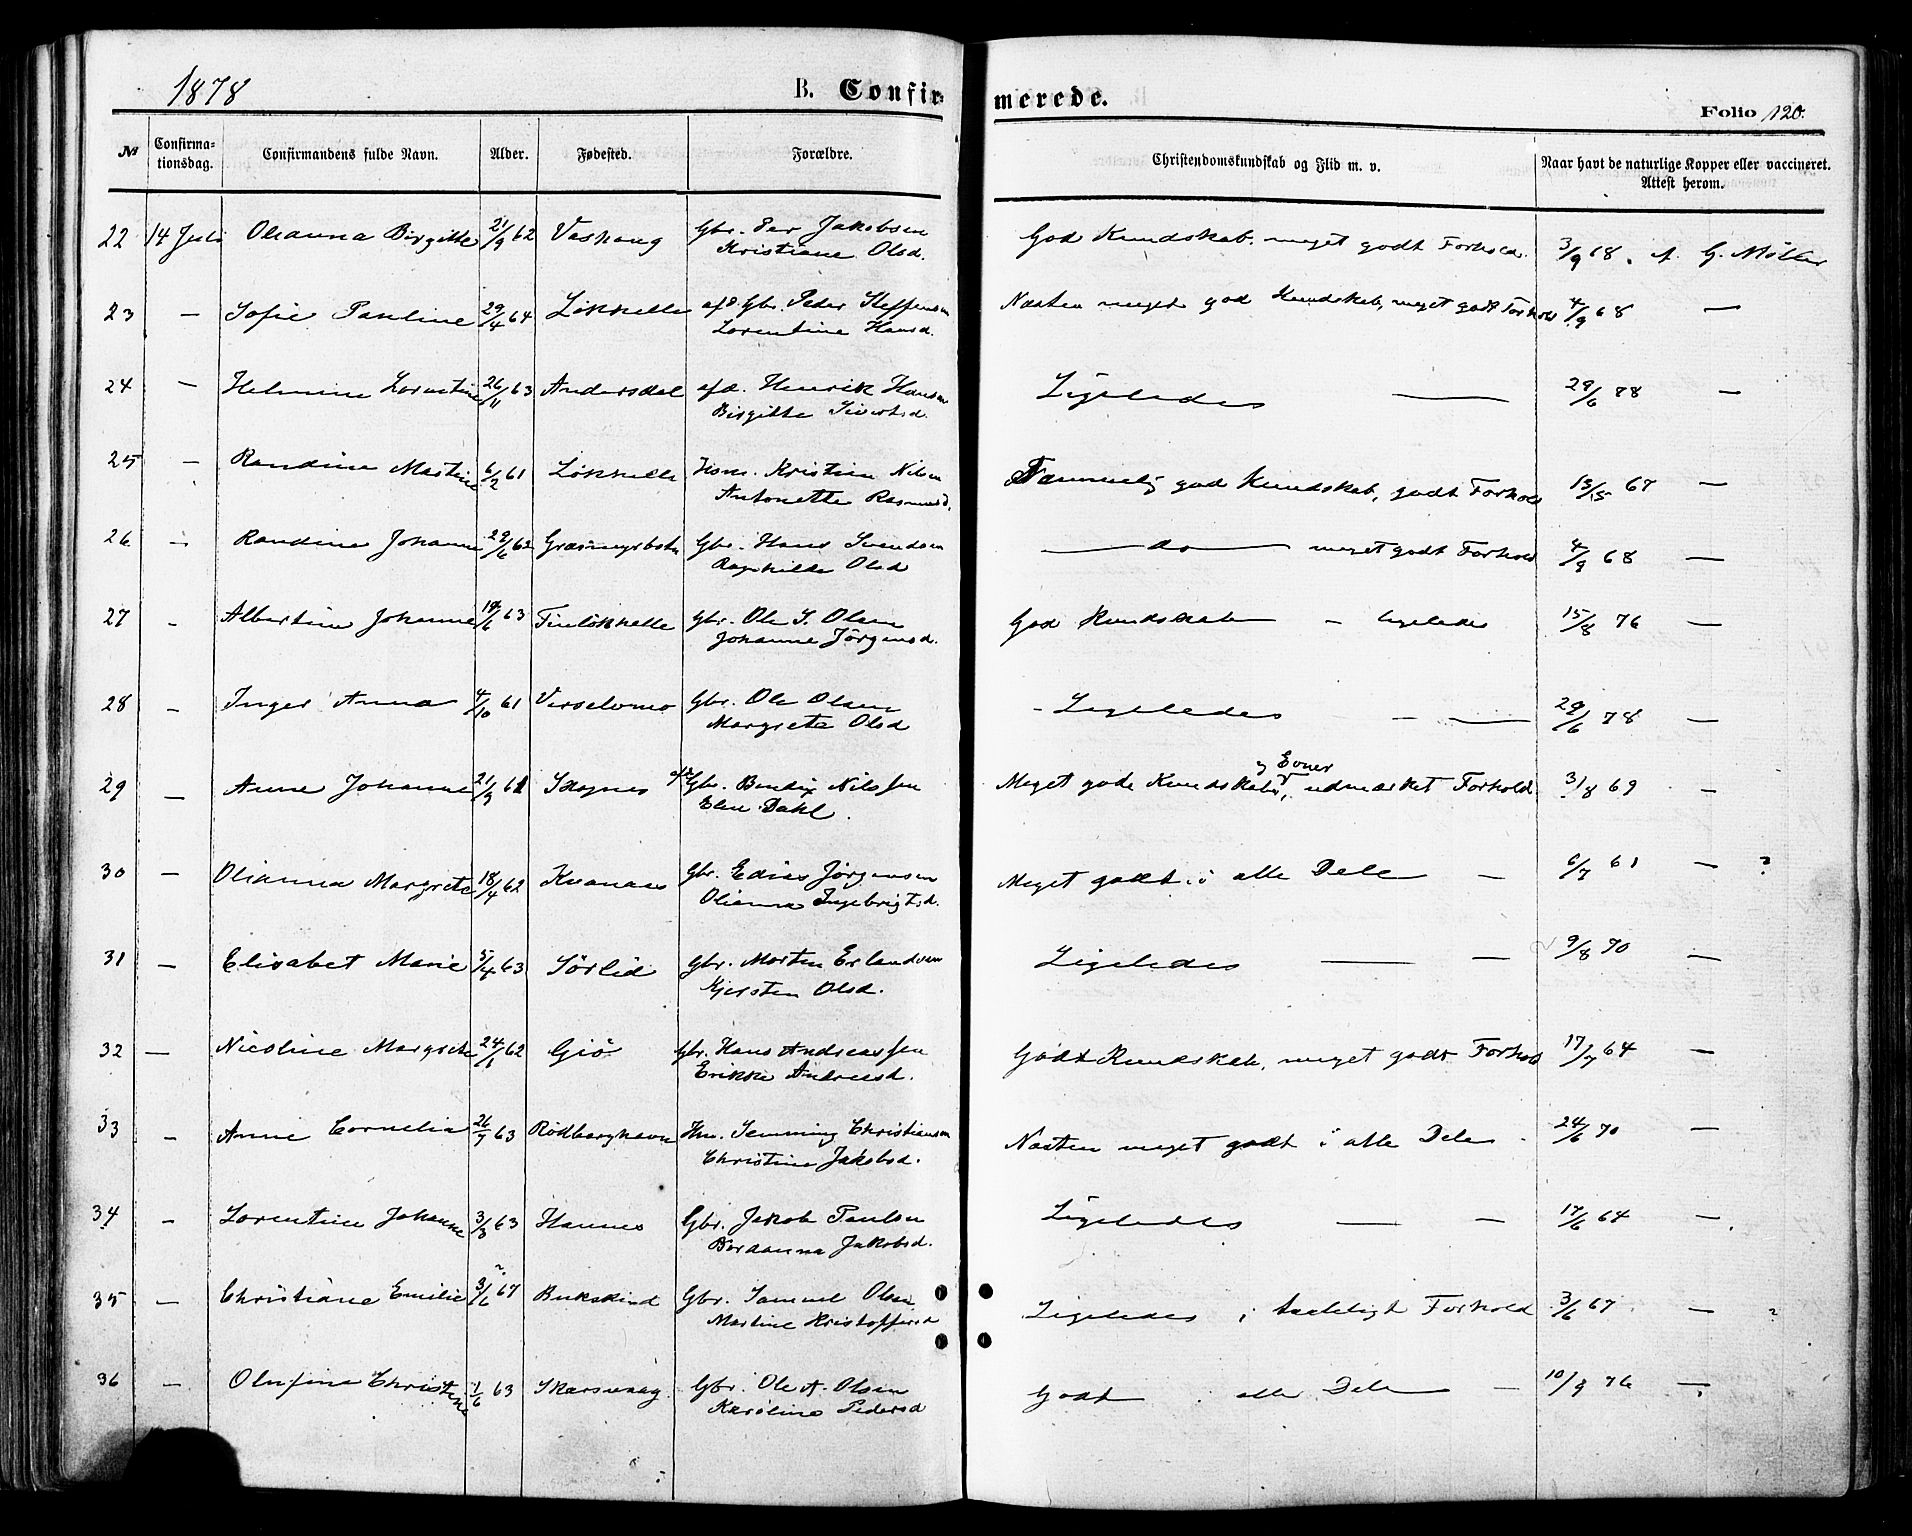 1878
B. Confirmerede.
Folio 120.
№ Confirmationsdag. Confirmandens fulde Navn. Alder. Fødested. Forældre. Christendomskundskab og Flid m. v. Naar havt de naturlige Kopper eller vaccineret. Attest herom.
22 14 Juli Olianna Birgitte 21/9 62 Gbr. Per Jakobsen God Kundskab, meget godt Forhold. 3/9 68. af G. Møller
Kristiane Olsd.
23 — Sofie Pauline 29/4 64 Løkkelle afd. Gbr. Peder Steffensen Næsten meget god Kundskab, meget godt Forhold 4/9 68 —
Lorentine Hansd.
24 — Helmine Lorentine 26/11 63 Andersdal afd. Henrik Hansen Ligeledes — 29/6 78 —
Birgitte Sivertsd.
25 — Randine Martine 6/2 61 Løkkelle Hsm. Kristian Nilsen Temmelig god Kundskab, godt Forhold 13/5 67 —
Antonette Rasmusd.
26 — Randine Johanne 29/6 62 Græsmyrbotn Gbr. Hans Svendsen — do — meget godt Forhold 4/9 68 —
Ragnhilda Olsd
27 - Albertine Johanne 19/6 63 Finløkkelle Gbr. Ole S. Olsen God Kundskab - ligeledes 15/8 76 —
Johanne Jørgensd.
28 — Inger Anna 4/10 61 Gbr. Ole Olsen - Ligeledes — — 29/6 78 —
Margrete Olsd
29 — Anne Johanne 21/9 61 Skognes afd. Gbr. Bendix Nilssen Meget gode Kundskaber og Evner, udmærket Forhold 31/8 69 —
Elen Dahl.
30 — Olianna Margrete 18/4 62 Kvanaas Gbr. Edias Jørgensen Meget godt i alle Dele — 6/7 61 — ?
Olianna Ingebrigtsd.
31 — Elisabet Marie 5/4 63 Sørlid Gbr. Morten Erlandsen Ligeledes — — 9/8 70 —
Kjersten Olsd.
32 — Nicoline Margrete 24/1 62 Giö Gbr. Hans Andreassen Godt Kundskab, meget godt Forhold 17/7 64 —
Erikke Andreasd.
33 — Anne Cornelia 26/7 63 Rödberghavn Hm. Hemming Christiansen Næsten meget godt i alle Dele 24/6 70 —
Christine Jakobsd.
34 — Lorentine Johanne 3/3 63 Hannes Gbr. Jakob Paulsen Ligeledes — — 17/6 64 —
Berdanna Jakobsd.
35 — Christiane Emilie 3/6 67 ? Bukskind Gbr. Samuel Olsen Ligeledes i taaleligt Forhold 3/6 67 — ?
Martine Kristoffersd
36 — Olufine Christine 1/6 63 Skarsvaag Gbr. Ole A. Olsen Godt i alle Dele — 10/9 76 —
Karoline Pedersd